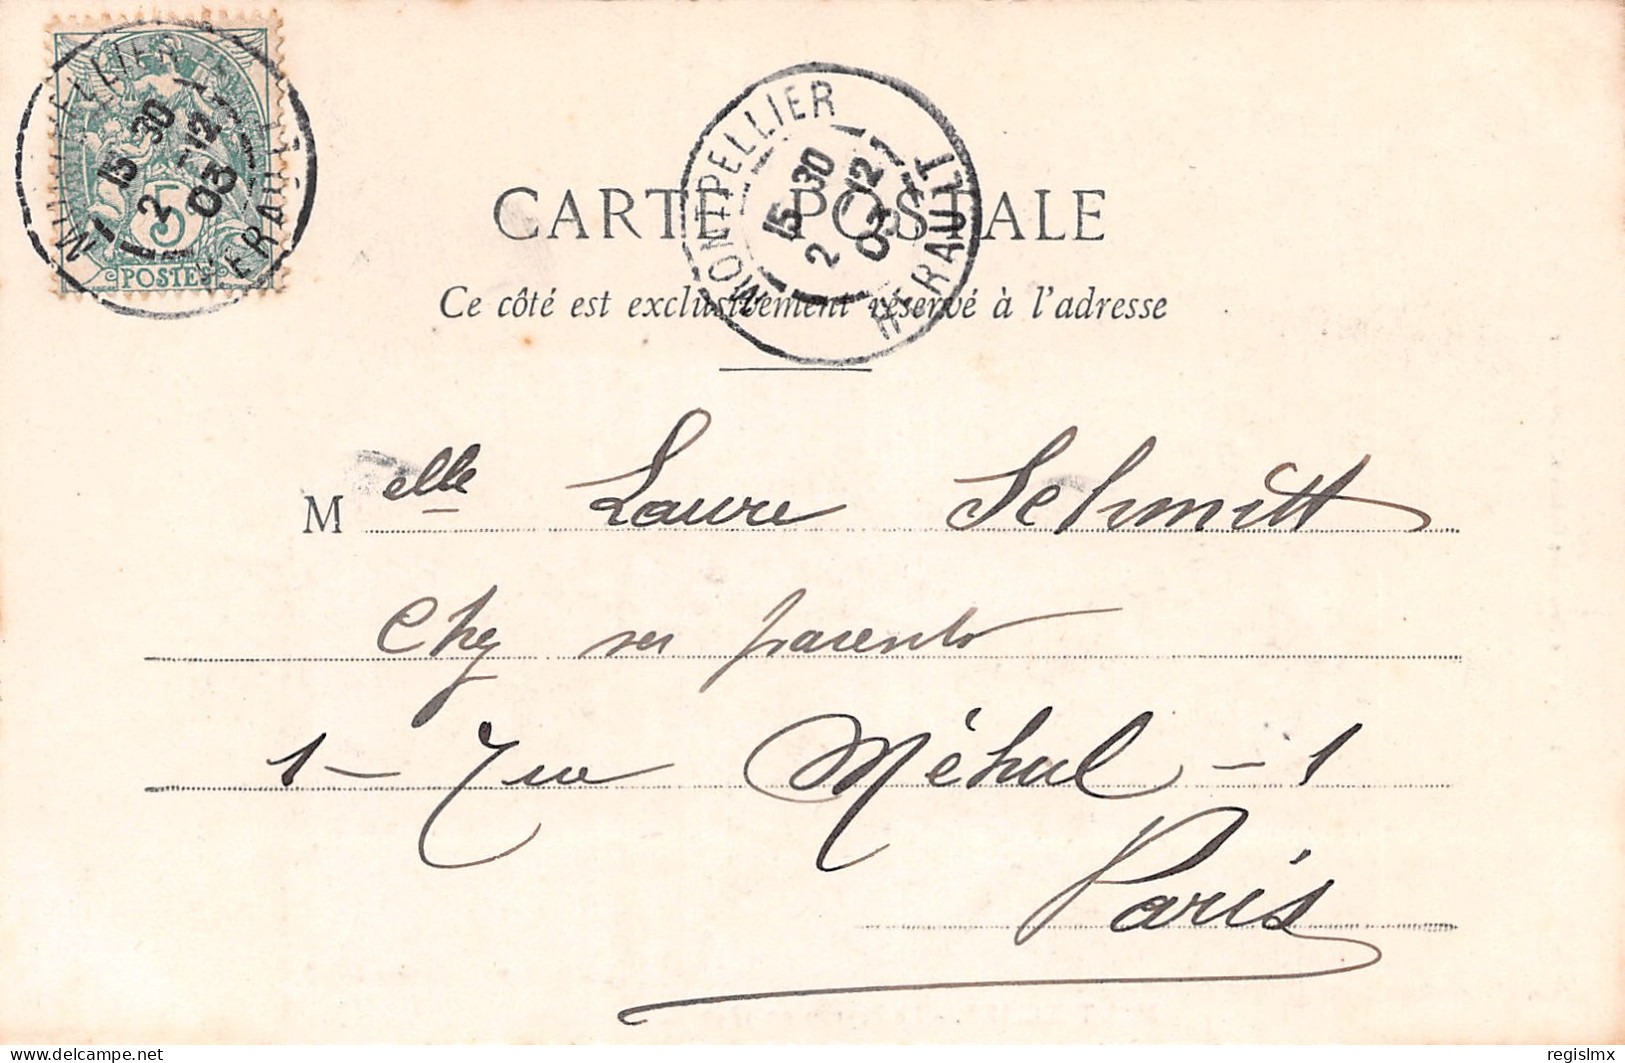 MONTPELLIER
15 30
2 -12
03
HERAULT
5
POSTES
MONTPELLIER
15 30
2 12
03
HERAULT
CARTE POSTALE
Ce côté est exclusivement réservé à l'adresse
Melle Laure Schmitt
Chez ses parents
1 - rue Méhul - 1
Paris
delcampe.net
regislmx